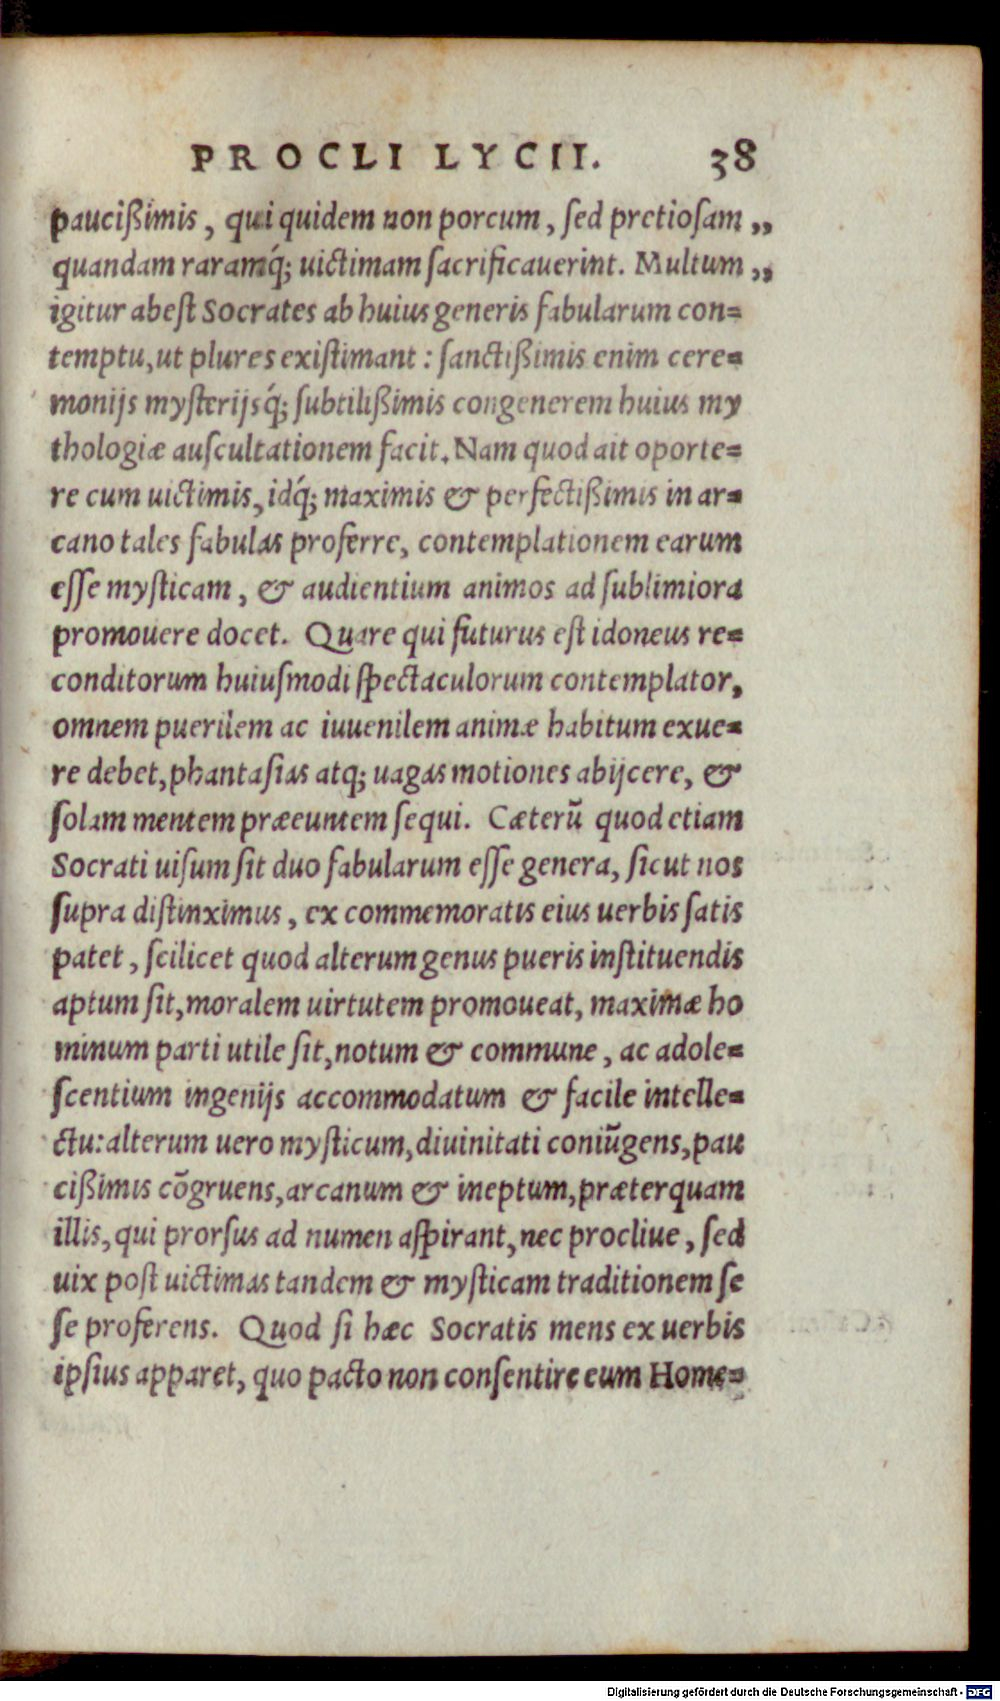 PROCLI LYCII. 38
paucißimis, qui quidem non porcum, ſed pretioſam „
quandam raramq́; uictimam ſacrificauerint. Multum „
igitur abeſt Socrates ab huius generis fabularum con=
temptu, ut plures exiſtimant: ſanctißimis enim cere=
monijs myſterijsq́; ſubtilißimis congenerem huius my
thologiæ auſcultationem facit. Nam quod ait oporte=
re cum uictimis, idq́; maximis & perfectißimis in ar=
cano tales fabulas proferre, contemplationem earum
eſſe myſticam, & audientium animos ad ſublimiora
promouere docet. Quare qui futurus eſt idoneus re=
conditorum huiuſmodi ſpectaculorum contemplator,
omnem puerilem ac iuuenilem animæ habitum exue=
re debet, phantaſias atq; uagas motiones abijcere, &
ſolam mentem præeuntem ſequi. Cæterũ quod etiam
Socrati uiſum ſit duo fabularum eſſe genera, ſicut nos
ſupra diſtinximus, ex commemoratis eius uerbis ſatis
patet, ſcilicet quod alterum genus pueris inſtituendis
aptum ſit, moralem uirtutem promoueat, maximæ ho
minum parti utile ſit, notum & commune, ac adole=
ſcentium ingenijs accommodatum & facile intelle=
ctu: alterum uero myſticum, diuinitati coniũgens, pau
cißimis cõgruens, arcanum & ineptum, præterquam
illis, qui prorſus ad numen aſpirant, nec procliue, ſed
uix poſt uictimas tandem & myſticam traditionem ſe
ſe proferens. Quod ſi hæc Socratis mens ex uerbis
ipſius apparet, quo pacto non conſentire eum Home=
Digitalisierung gefördert durch die Deutsche Forschungsgemeinschaft - DFG